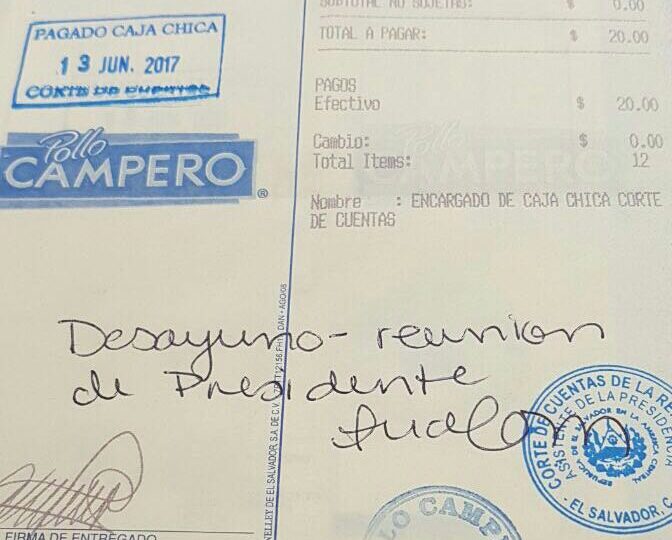 PAGADO CAJA CHICA
13 JUN. 2017
CORTE DE CUENTAS
Pollo
CAMPERO
®
SUBTOTAL NO SUJETAS: $ 0.00
TOTAL A PAGAR: $ 20.00
PAGOS
Efectivo $ 20.00
Cambio: $ 0.00
Total Items: 12
Nombre : ENCARGADO DE CAJA CHICA CORTE
DE CUENTAS
Desayuno - reunion
de Presidente
CORTE DE CUENTAS DE LA
ASISTENTE DE LA PRESIDENCIA
REPUBLICA DE EL SALVADOR EN LA AMERICA CENTRAL
EL SALVADOR, C.
DE EL SALVADOR, S.A. DE C.V.
FIRMA DE ENTREGADO